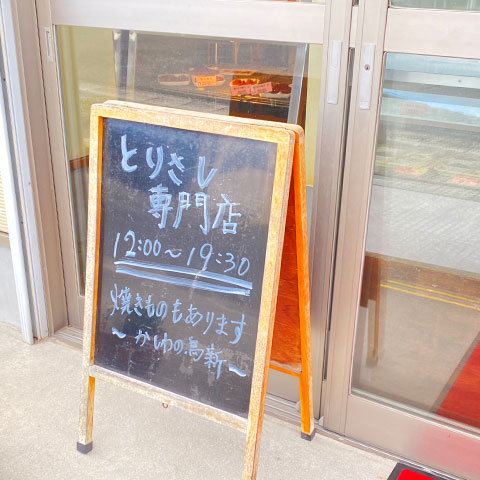 とりさし
専門店
12:00〜19:30
焼きものもあります
〜かしわの鳥新〜